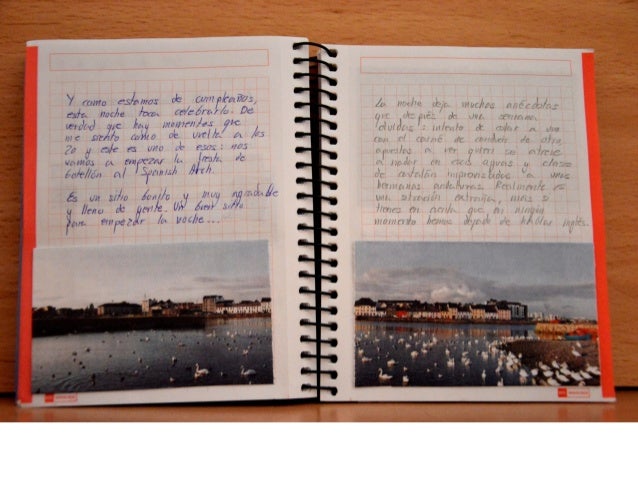 Y como estamos de cumpleaños,
esta noche toca celebrarlo. De
verdad que hay momentos que
me siento como de vuelta a los
20 y este es uno de esos: nos
vamos a empezar la fiesta de
botellón al Spanish Arch.
Es un sitio bonito y muy agradable
y lleno de gente. Un buen sitio
para empezar la noche...
La noche deja muchas anécdotas
que después de una semana
olvidas: intento de colar a uno
con el carné de conducir de otro,
apuestas a ver quien se atreve
a nadar en esas aguas y clase
de catalán improvisadas a unas
hermanas andaluzas. Realmente es
una situación extraña, más si
tienes en cuenta que en ningún
momento hemos dejado de hablar inglés.